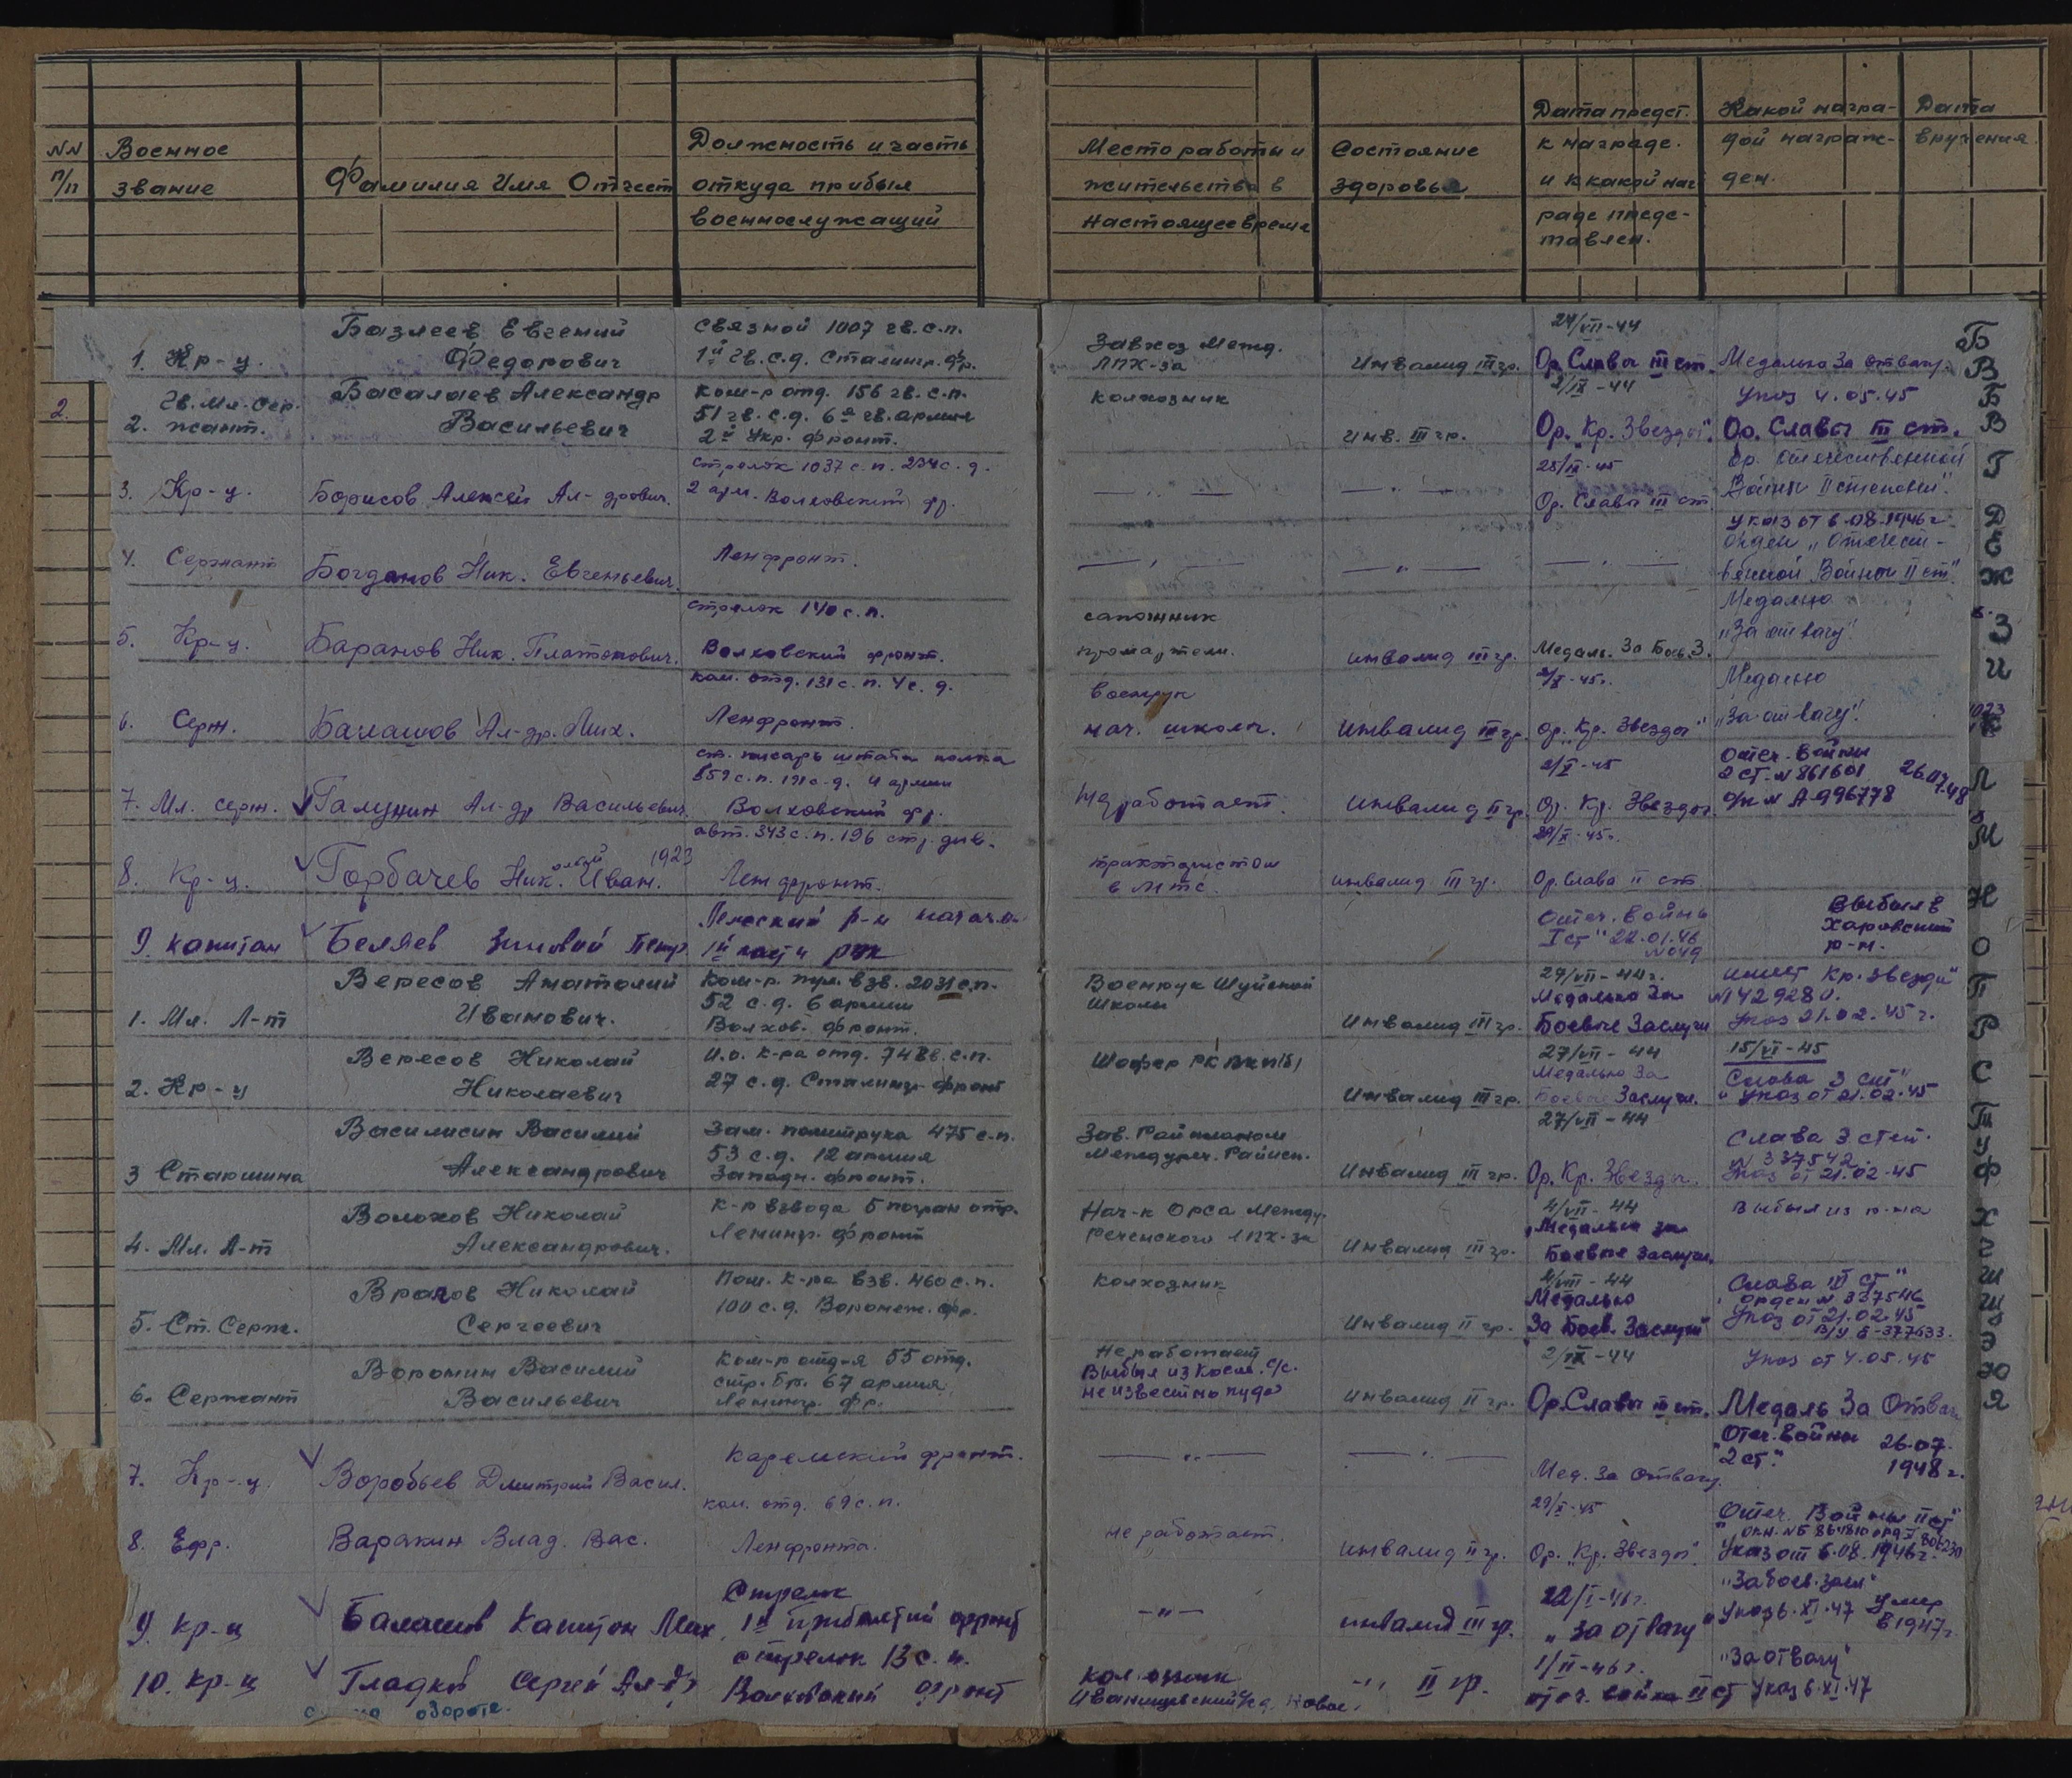 NN п/п
Военное звание
Фамилия Имя Отчест
Должность и часть откуда прибыл военнослужащий
Место работы и жительства в настоящее время
Состояние здоровья
Дата предст. к награде. и к какой наг раде предс- тавлен.
Какой награ- дой награж- ден.
Дата вручения
1. Кр-ц.
Базлеев Евгений
Федорович
Связной 1007 гв.с.п.
1й гв.с.д. Сталингр. фр.
Завхоз Межд.
ЛПХ-за
Инвалид III гр.
27/VII-44
Ор. Славы III ст.
Медалью За отвагу.
2.
Гв. Мл. Сер-
2. жант.
Басалаев Александр
Васильевич
Ком-р отд. 156 гв.с.п.
51 гв. с.д. 6й гв. армия
2й Укр. фронт.
колхозник
инв. III гр.
2/IX-44
Ор. "Кр. Звезды".
Указ 4.05.45
Ор. Славы III ст.
3. Кр-ц.
Борисов Алексей Ал-дрович.
стрелок 1037 с.п. 234 с.д.
2 арм. Волховский фр.
— " —
— " —
28/IX-45
Ор. Славы III ст.
Ор. Отечественной
Войны II степени".
4. Сержант
Богданов Ник. Евгеньевич.
Ленфронт.
— " —
— " —
— " —
указ от 6.08.1946 г.
орден "Отечест-
венной Войны II ст"
5. Кр-ц.
Баранов Ник. Платонович.
стрелок 140 с.п.
Волховский фронт.
сапожник
промартели.
инвалид III гр.
Медаль. За Боев. З.
Медалью
"За отвагу".
6. Серж.
Балашов Ал-др. Мих.
ком. отд. 131 с.п. 4 с.д.
Ленфронт.
военрук
нач. школы.
инвалид III гр.
2/X-45г.
Ор. "Кр. Звезды"
Медалью
"За отвагу".
7. Мл. серж.
Галунин Ал-др Васильевич.
ст. писарь штаба полка
859 с.п. 191 с.д. 4 армии
Волховский фр.
Не работает.
инвалид II гр.
2/X-45
Ор. Кр. Звезды.
Отеч. войны
2 ст. N 861601 26.07.48
о/к N А 996778
8. Кр-ц.
Горбачев Николай Иван. 1923
авт. 343 с.п. 196 стр. див.
Лен фронт.
трактористом
в МТС.
инвалид III гр.
29/X-45г.
Ор. Слава II ст
9. капитан
Беляев Зиновий Петр
р-н начальн.
1й части РВК
Отеч. войны
I ст" 22.01.46
N 049
Выбыл в
Харовский
р-н.
1. Мл. Л-т
Вересов Анатолий
Иванович.
Ком-р. пул. взв. 2031 с.п.
52 с.д. 6 армии
Волхов. фронт.
Военрук Шуйской
школы
Инвалид III гр.
27/VII-44г.
Медалью За
Боевые Заслуги
имеет Кр. Звезды"
N 1429280.
Указ 21.02.45 г.
2. Кр-ц
Вересов Николай
Николаевич
И.о. к-ра отд. 74 гв.с.п.
27 с.д. Сталингр. фронт
Шофер РК ВКП(б)
Инвалид III гр.
27/VII-44
Медалью За
Боевые Заслуги.
15/VI-45
Слава 3 ст"
" Указ от 21.02.45
3 Старшина
Василисин Василий
Александрович
Зам. политрука 475 с.п.
53 с.д. 12 армия
Западн. фронт.
Зав. Райпланом
Междуреч. Райисп.
Инвалид III гр.
27/VII-44
Ор. Кр. Звезды.
Слава 3 степ.
N 337542.
Указ от 21.02.45
4. Мл. Л-т
Волохов Николай
Александрович.
К-р взвода 5 погран отр.
Ленингр. фронт
Нач-к Орса Между-
реченского ЛПХ-за
Инвалид III гр.
4/VII-44
"Медалью за
Боевые Заслуги.
Выбыл из р-на
5. Ст. Серж.
Врагов Николай
Сергеевич
Пом. к-ра взв. 460 с.п.
100 с.д. Воронеж. фр.
Колхозник
Инвалид II гр.
4/VIII-44
Медалью
За Боев. Заслуги"
Слава III ст"
" орден N 337546
Указ от 21.02.45
В/у Б-377633.
6. Сержант
Воронин Василий
Васильевич
Ком-р отд-я 55 отд.
стр. бр. 67 армия
Ленингр. фр.
Не работает
Выбыл из Косм. с/с.
неизвестно куда
Инвалид II гр.
2/IX-44
Ор. Славы III ст.
Указ от 4.05.45
Медаль За Отвагу
7. Кр-ц.
Воробьев Дмитрий Васил.
Карельский фронт.
— " —
— " —
Мед. За Отвагу.
Отеч. войны 26.07.
"2 ст." 1948 г.
8. Ефр.
Варакин Влад. Вас.
ком. отд. 69 с.п.
Ленфронта.
не работает.
инвалид II гр.
29/X-45
Ор. "Кр. Звезды".
Отеч. Войны II ст"
Указ от 6.08.1946 г.
9. Кр-ц
Балашов Капитон Мих
Стрелок
1й прибалтий фронт
— " —
инвалид III гр.
22/I-46г.
"За отвагу"
"За боев. засл"
Указ 6.XI.47 умер
в 1947г.
10. Кр-ц
Гладков Сергей Ал-др
стрелок 13 с.п.
Волховский фронт
колхозник
Иванищевский с/с д. Новое.
" II гр.
1/II-46г.
отеч. война II ст
"За отвагу"
Указ 6.XI.47
обороте.
Б
В
Б
В
Г
Д
Е
Ж
З
И
К
Л
М
Н
О
П
Р
С
Т
У
Ф
Х
Ш
Щ
Э
Ю
Я